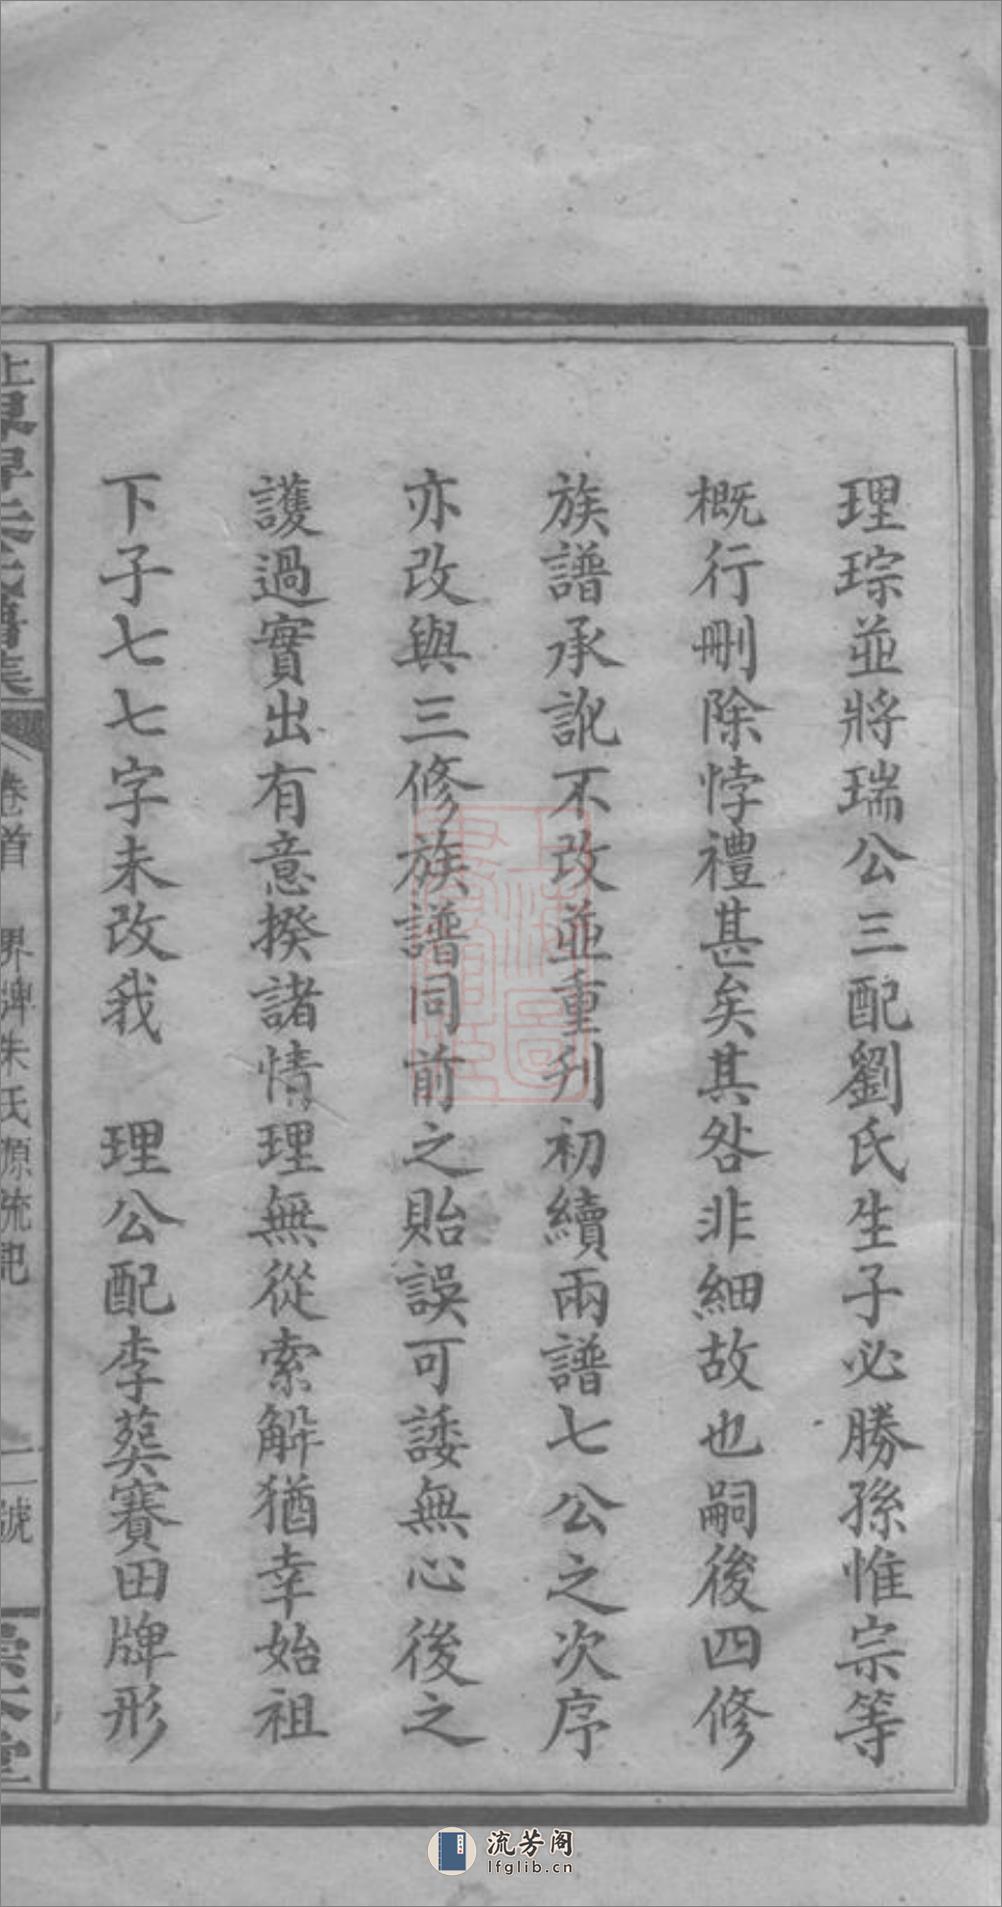 理琮並將瑞公三配劉氏生子必勝孫惟宗等
概行刪除悖禮甚矣其咎非細故也嗣後四修
族譜承訛不改並重刋初續兩譜七公之次序
亦改與三修族譜同前之貽誤可諉無心後之
護過實出有意揆諸情理無從索解猶幸始祖
下子七七字未改我　理公配李葬賽田牌形
卷首　界牌朱氏源流記
號
上海圖書館藏
流芳阁
lfglib.cn